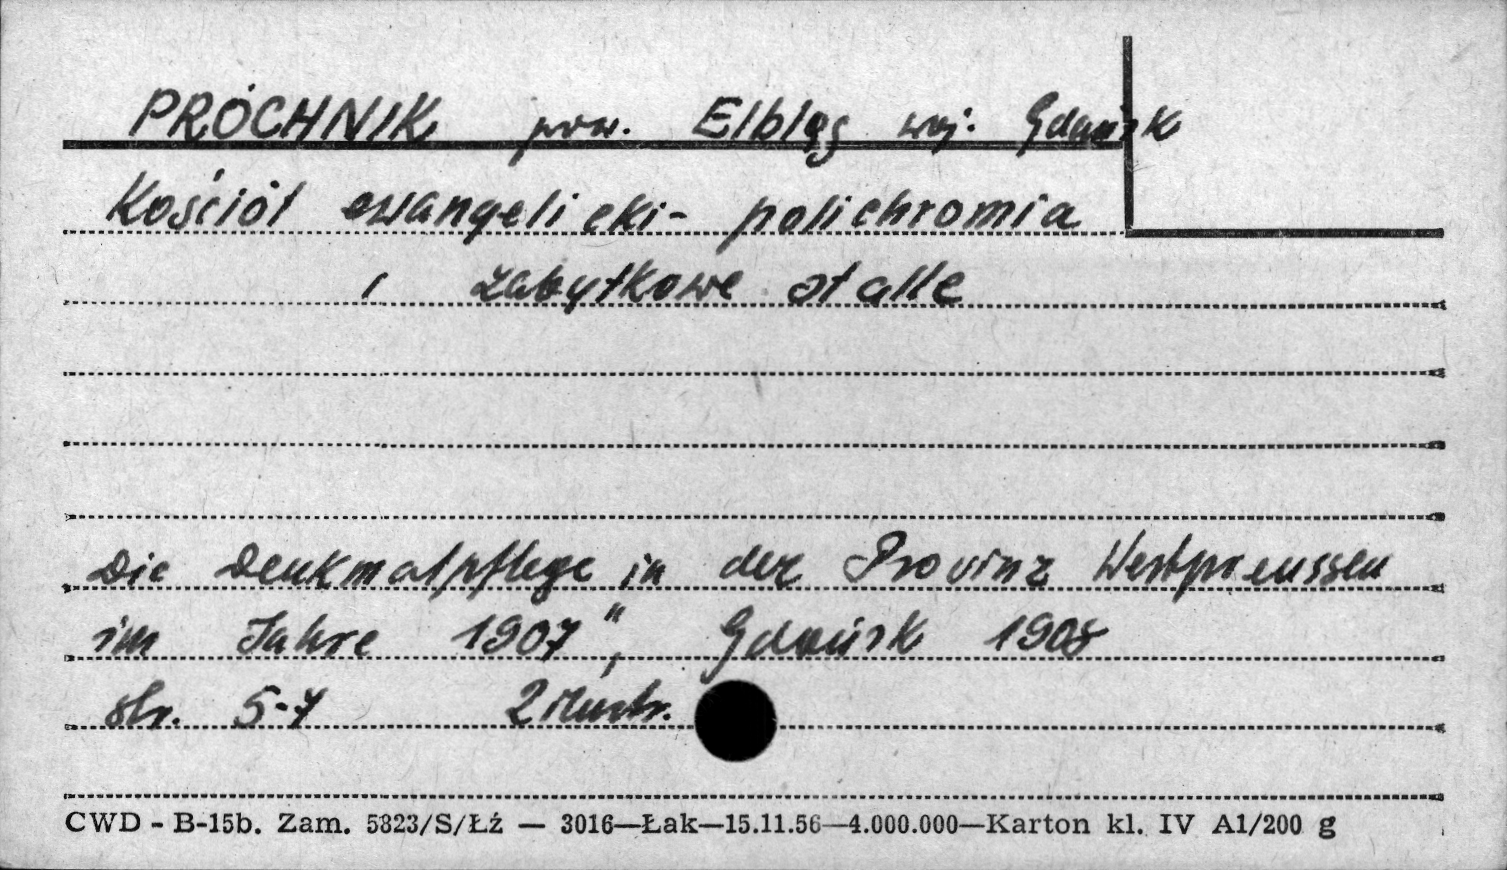 PRÓCHNIK pow. Elbląg woj. Gdańsk
Kościół ewangelicki - polichromia
i zabytkowe stalle
Die Denkmalpflege in der Provinz Westpreussen
im Jahre 1907", Gdańsk 1908
str. 5-7 2 ilustr.
CWD - B-15b. Zam. 5823/S/Łź — 3016—Łak—15.11.56—4.000.000—Karton kl. IV A1/200 g